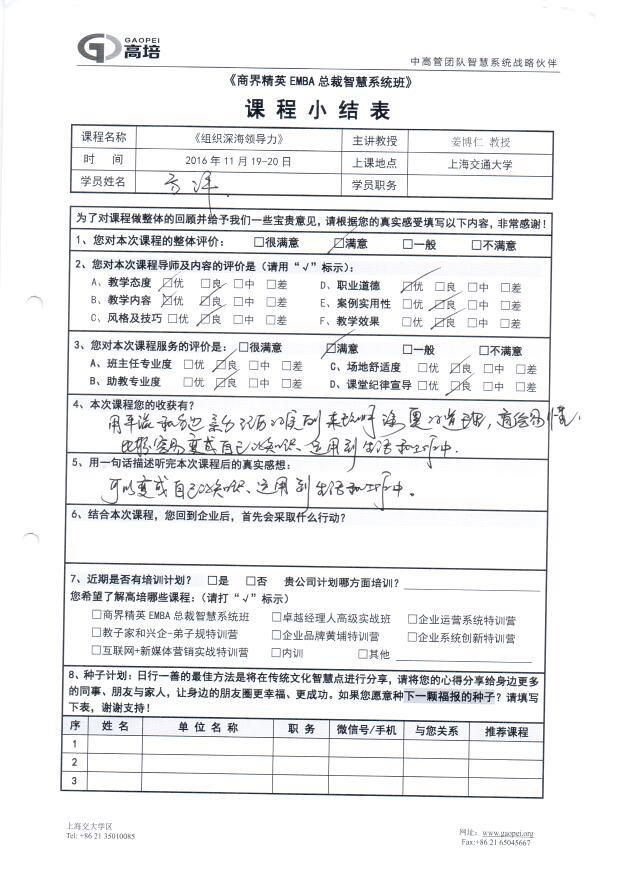 GAOPEI
高培
中高管团队智慧系统战略伙伴
《商界精英 EMBA 总裁智慧系统班》
课 程 小 结 表
课程名称 《组织深海领导力》 主讲教授 姜博仁 教授
时 间 2016 年 11 月 19-20 日 上课地点 上海交通大学
学员姓名 学员职务
为了对课程做整体的回顾并给予我们一些宝贵意见，请根据您的真实感受填写以下内容，非常感谢！
1、您对本次课程的整体评价： □很满意 □满意 □一般 □不满意
2、您对本次课程导师及内容的评价是（请用“√”标示）：
A、教学态度 □优 □良 □中 □差 D、职业道德 □优 □良 □中 □差
B、教学内容 □优 □良 □中 □差 E、案例实用性 □优 □良 □中 □差
C、风格及技巧 □优 □良 □中 □差 F、教学效果 □优 □良 □中 □差
3、您对本次课程服务的评价是：□很满意 □满意 □一般 □不满意
A、班主任专业度 □优 □良 □中 □差 C、场地舒适度 □优 □良 □中 □差
B、助教专业度 □优 □良 □中 □差 D、课堂纪律宣导 □优 □良 □中 □差
4、本次课程您的收获有？
用 和自己亲身经历的实例来 深奥的道理，
比较容易变成自己的知识、运用到生活和工作中.
5、用一句话描述听完本次课程后的真实感想：
可以变成自己的知识、运用到生活和工作中。
6、结合本次课程，您回到企业后，首先会采取什么行动？
7、近期是否有培训计划？ □是 □否 贵公司计划哪方面培训？
您希望了解高培哪些课程：（请打“√”标示）
□商界精英 EMBA 总裁智慧系统班 □卓越经理人高级实战班 □企业运营系统特训营
□教子家和兴企-弟子规特训营 □企业品牌黄埔特训营 □企业系统创新特训营
□互联网+新媒体营销实战特训营 □内训 □其他
8、种子计划：日行一善的最佳方法是将在传统文化智慧点进行分享，请将您的心得分享给身边更多
的同事、朋友与家人，让身边的朋友圈更幸福、更成功。如果您愿意种下一颗福报的种子？请填写
下表，谢谢支持！
序 姓 名 单 位 名 称 职 务 微信号/手机 与您关系 推荐课程
1
2
3
上海交大学区 网址：www.gaopei.org
Tel: +86 21 35010085 Fax:+86 21 65045667